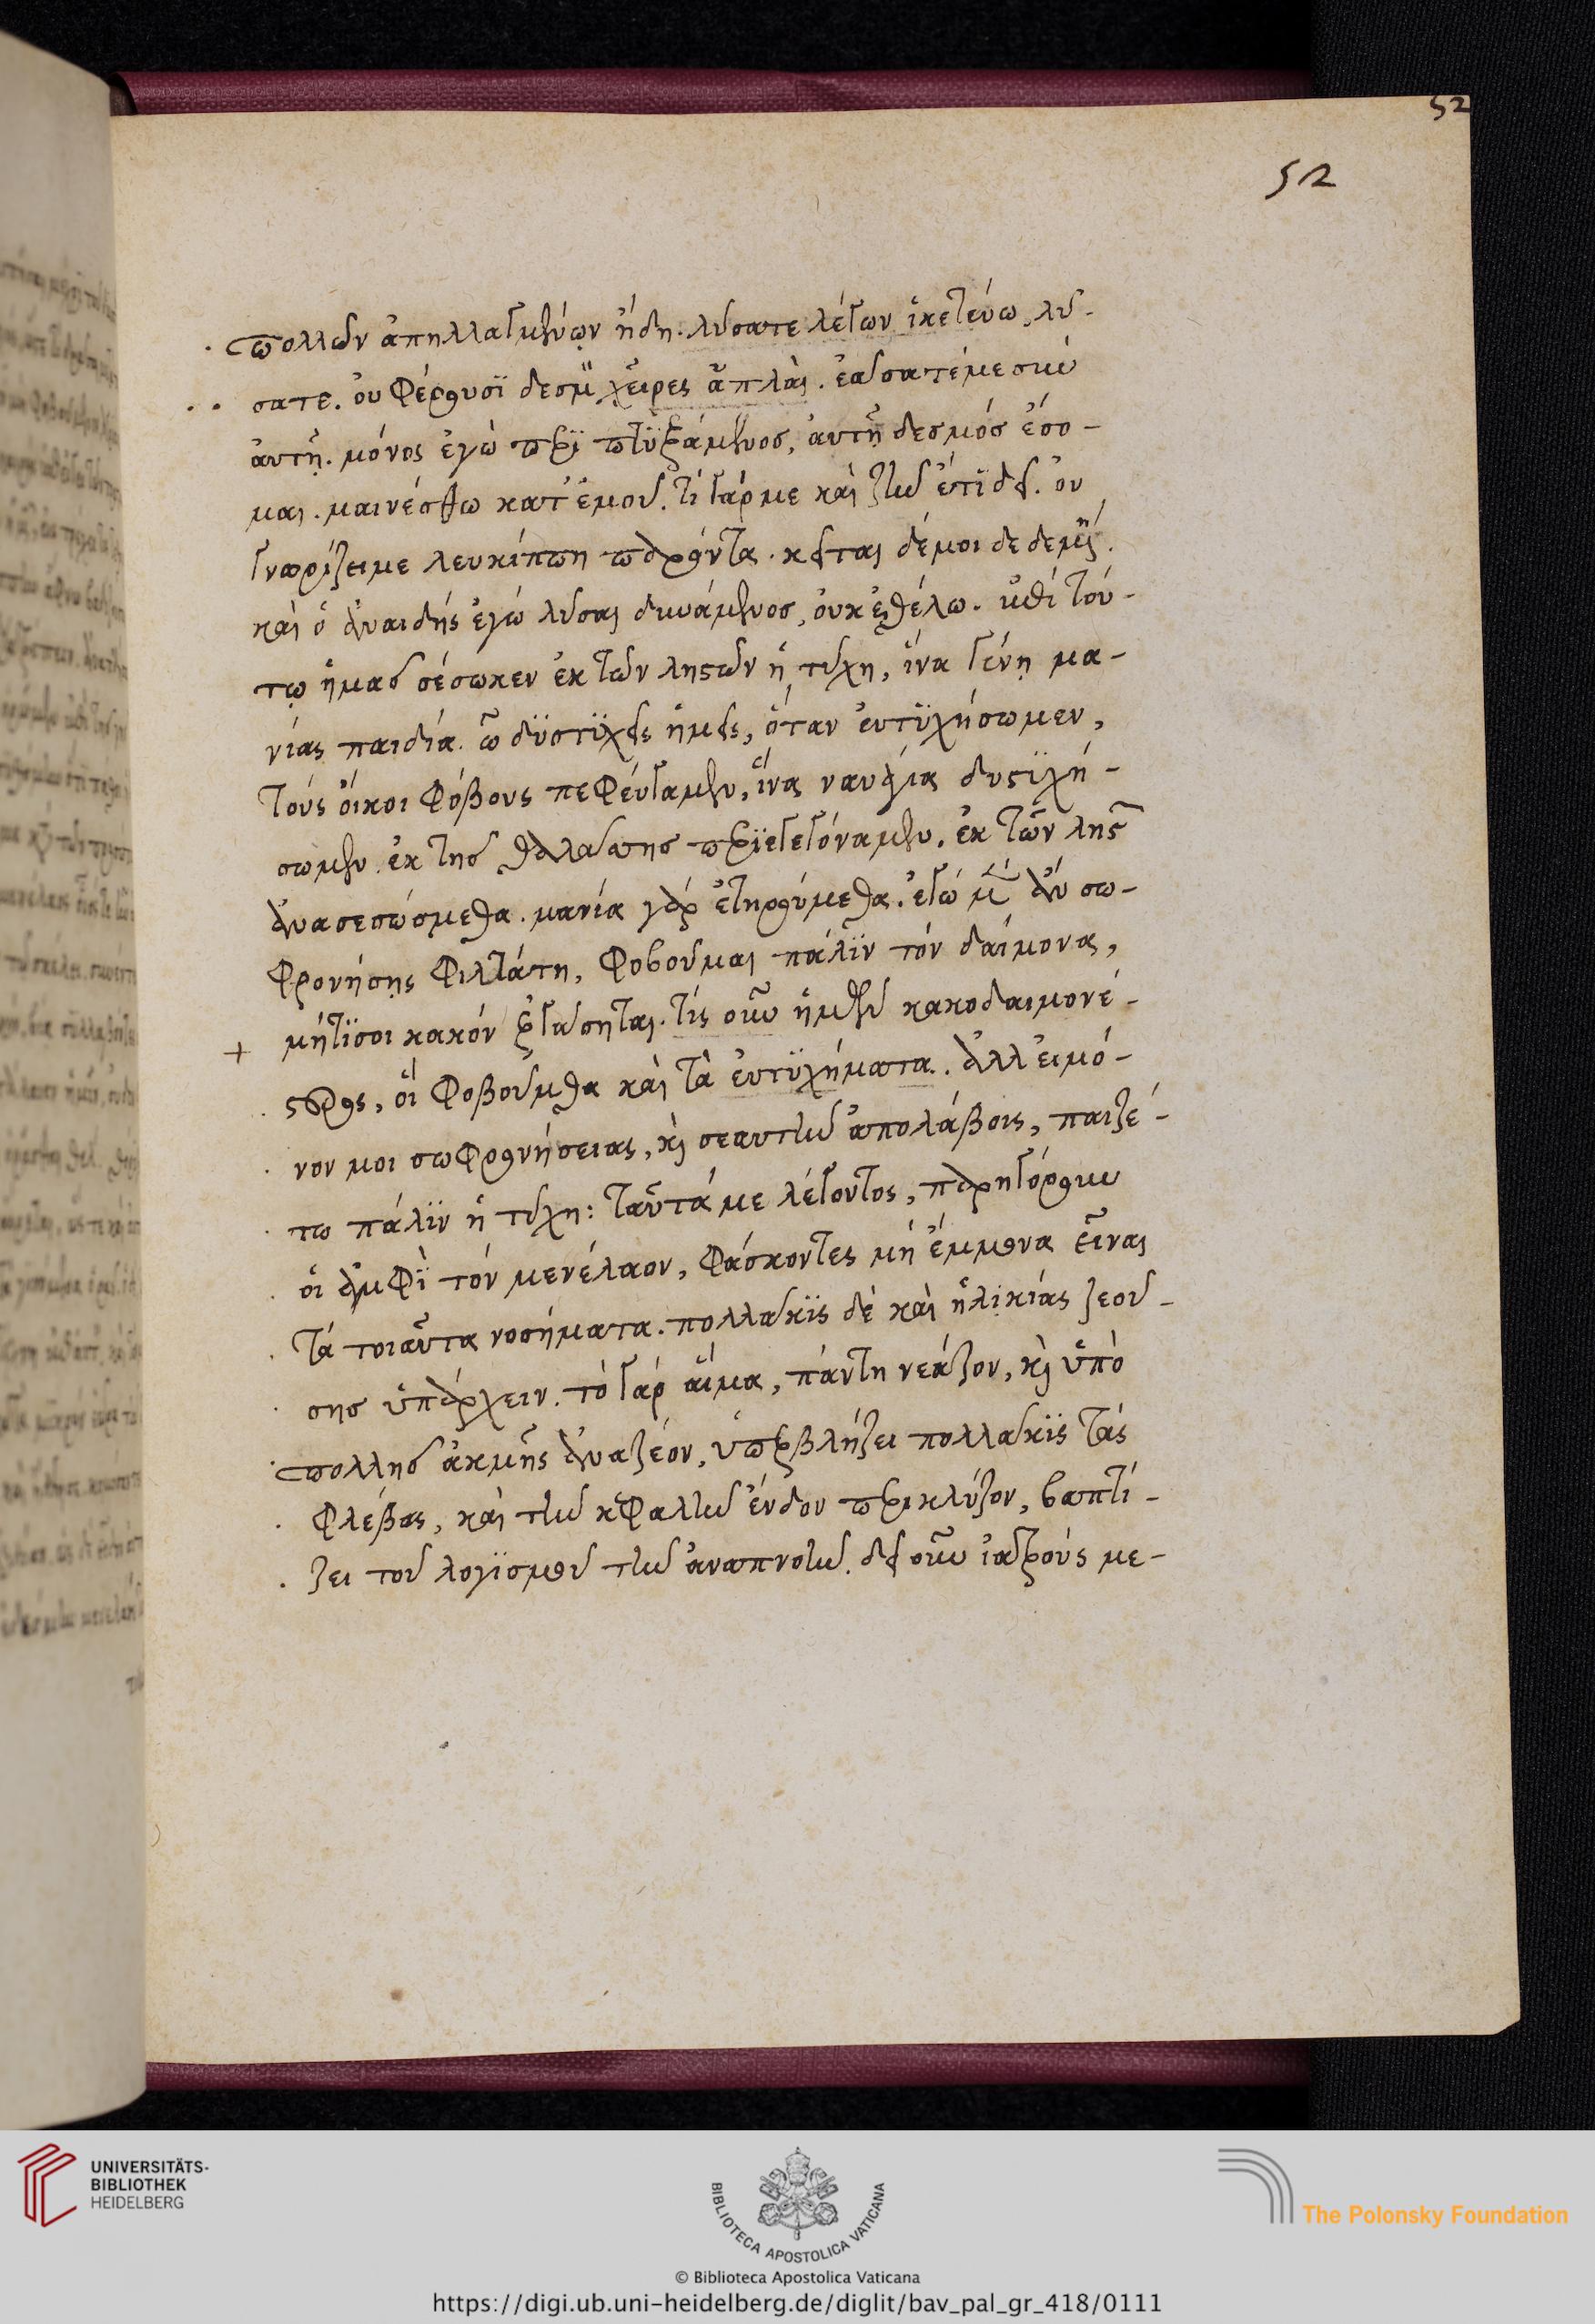 52
52
πολλῶν ἀπηλλαγμένων ἤδη. λύσατε λέγων ἱκετεύω, λύ-
σατε. οὐ φέρουσι δεσμὸν χεῖρες ἁπλαὶ. ἐάσατέ με σὺν
αὐτῇ. μόνος ἐγὼ περιπτυξάμενος, αὐτῇ δεσμός ἔσο-
μαι. μαινέσθω κατ' ἐμοῦ. τί γάρ με καὶ ζῆν ἔτι δεῖ. οὐ
γνωρίζει με λευκίππη παρόντα. κεῖται δέ μοι δεδεμένη.
καὶ ὁ ἀναιδής ἐγώ λῦσαι δυνάμενος, οὐκ ἐθέλω. ἐπὶ τού-
τῳ ἡμᾶς σέσωκεν ἐκ τῶν λῃστῶν ἡ τύχη, ἵνα γένῃ μα-
νίας παιδιά. ὦ δυστυχεῖς ἡμεῖς, ὅταν εὐτυχήσωμεν,
τούς οἴκοι φόβους πεφεύγαμεν, ἵνα ναυαγίᾳ δυστυχή-
σωμεν. ἐκ τῆς θαλάσσης περιγεγόναμεν. ἐκ τῶν λῃστῶν
ἀνασεσώσμεθα. μανίᾳ γὰρ ἐτηρούμεθα. ἐγώ μὲν ἂν σω-
φρονήσῃς φιλτάτη, φοβοῦμαι πάλιν τόν δαίμονα,
μή τί σοι κακόν ἐργάσηται. τίς οὖν ἡμῶν κακοδαιμονέ-
στερος, οἳ φοβούμεθα καὶ τὰ εὐτυχήματα. ἀλλ' εἰ μό-
νον μοι σωφρονήσειας, καὶ σεαυτὴν ἀπολάβοις, παιζέ-
τω πάλιν ἡ τύχη: ταῦτά με λέγοντος, παρηγόρουν
οἱ ἀμφὶ τόν μενέλαον, φάσκοντες μή ἔμμονα εἶναι
τά τοιαῦτα νοσήματα. πολλάκις δέ καὶ ἡλικίας ζεού-
σης ὑπάρχειν. τὸ γάρ αἷμα, πάντη νεάζον, καὶ ὑπὸ
πολλῆς ἀκμῆς ἀναζέον, ὑπερβλύζει πολλάκις τάς
φλέβας, καὶ τὴν κεφαλὴν ἔνδον περικλύζον, βαπτί-
ζει τοῦ λογισμοῦ τὴν ἀναπνοήν. δεῖ οὖν ἰατρούς με-
UNIVERSITÄTS-
BIBLIOTHEK
HEIDELBERG
BIBLIOTECA APOSTOLICA VATICANA
The Polonsky Foundation
© Biblioteca Apostolica Vaticana
https://digi.ub.uni-heidelberg.de/diglit/bav_pal_gr_418/0111